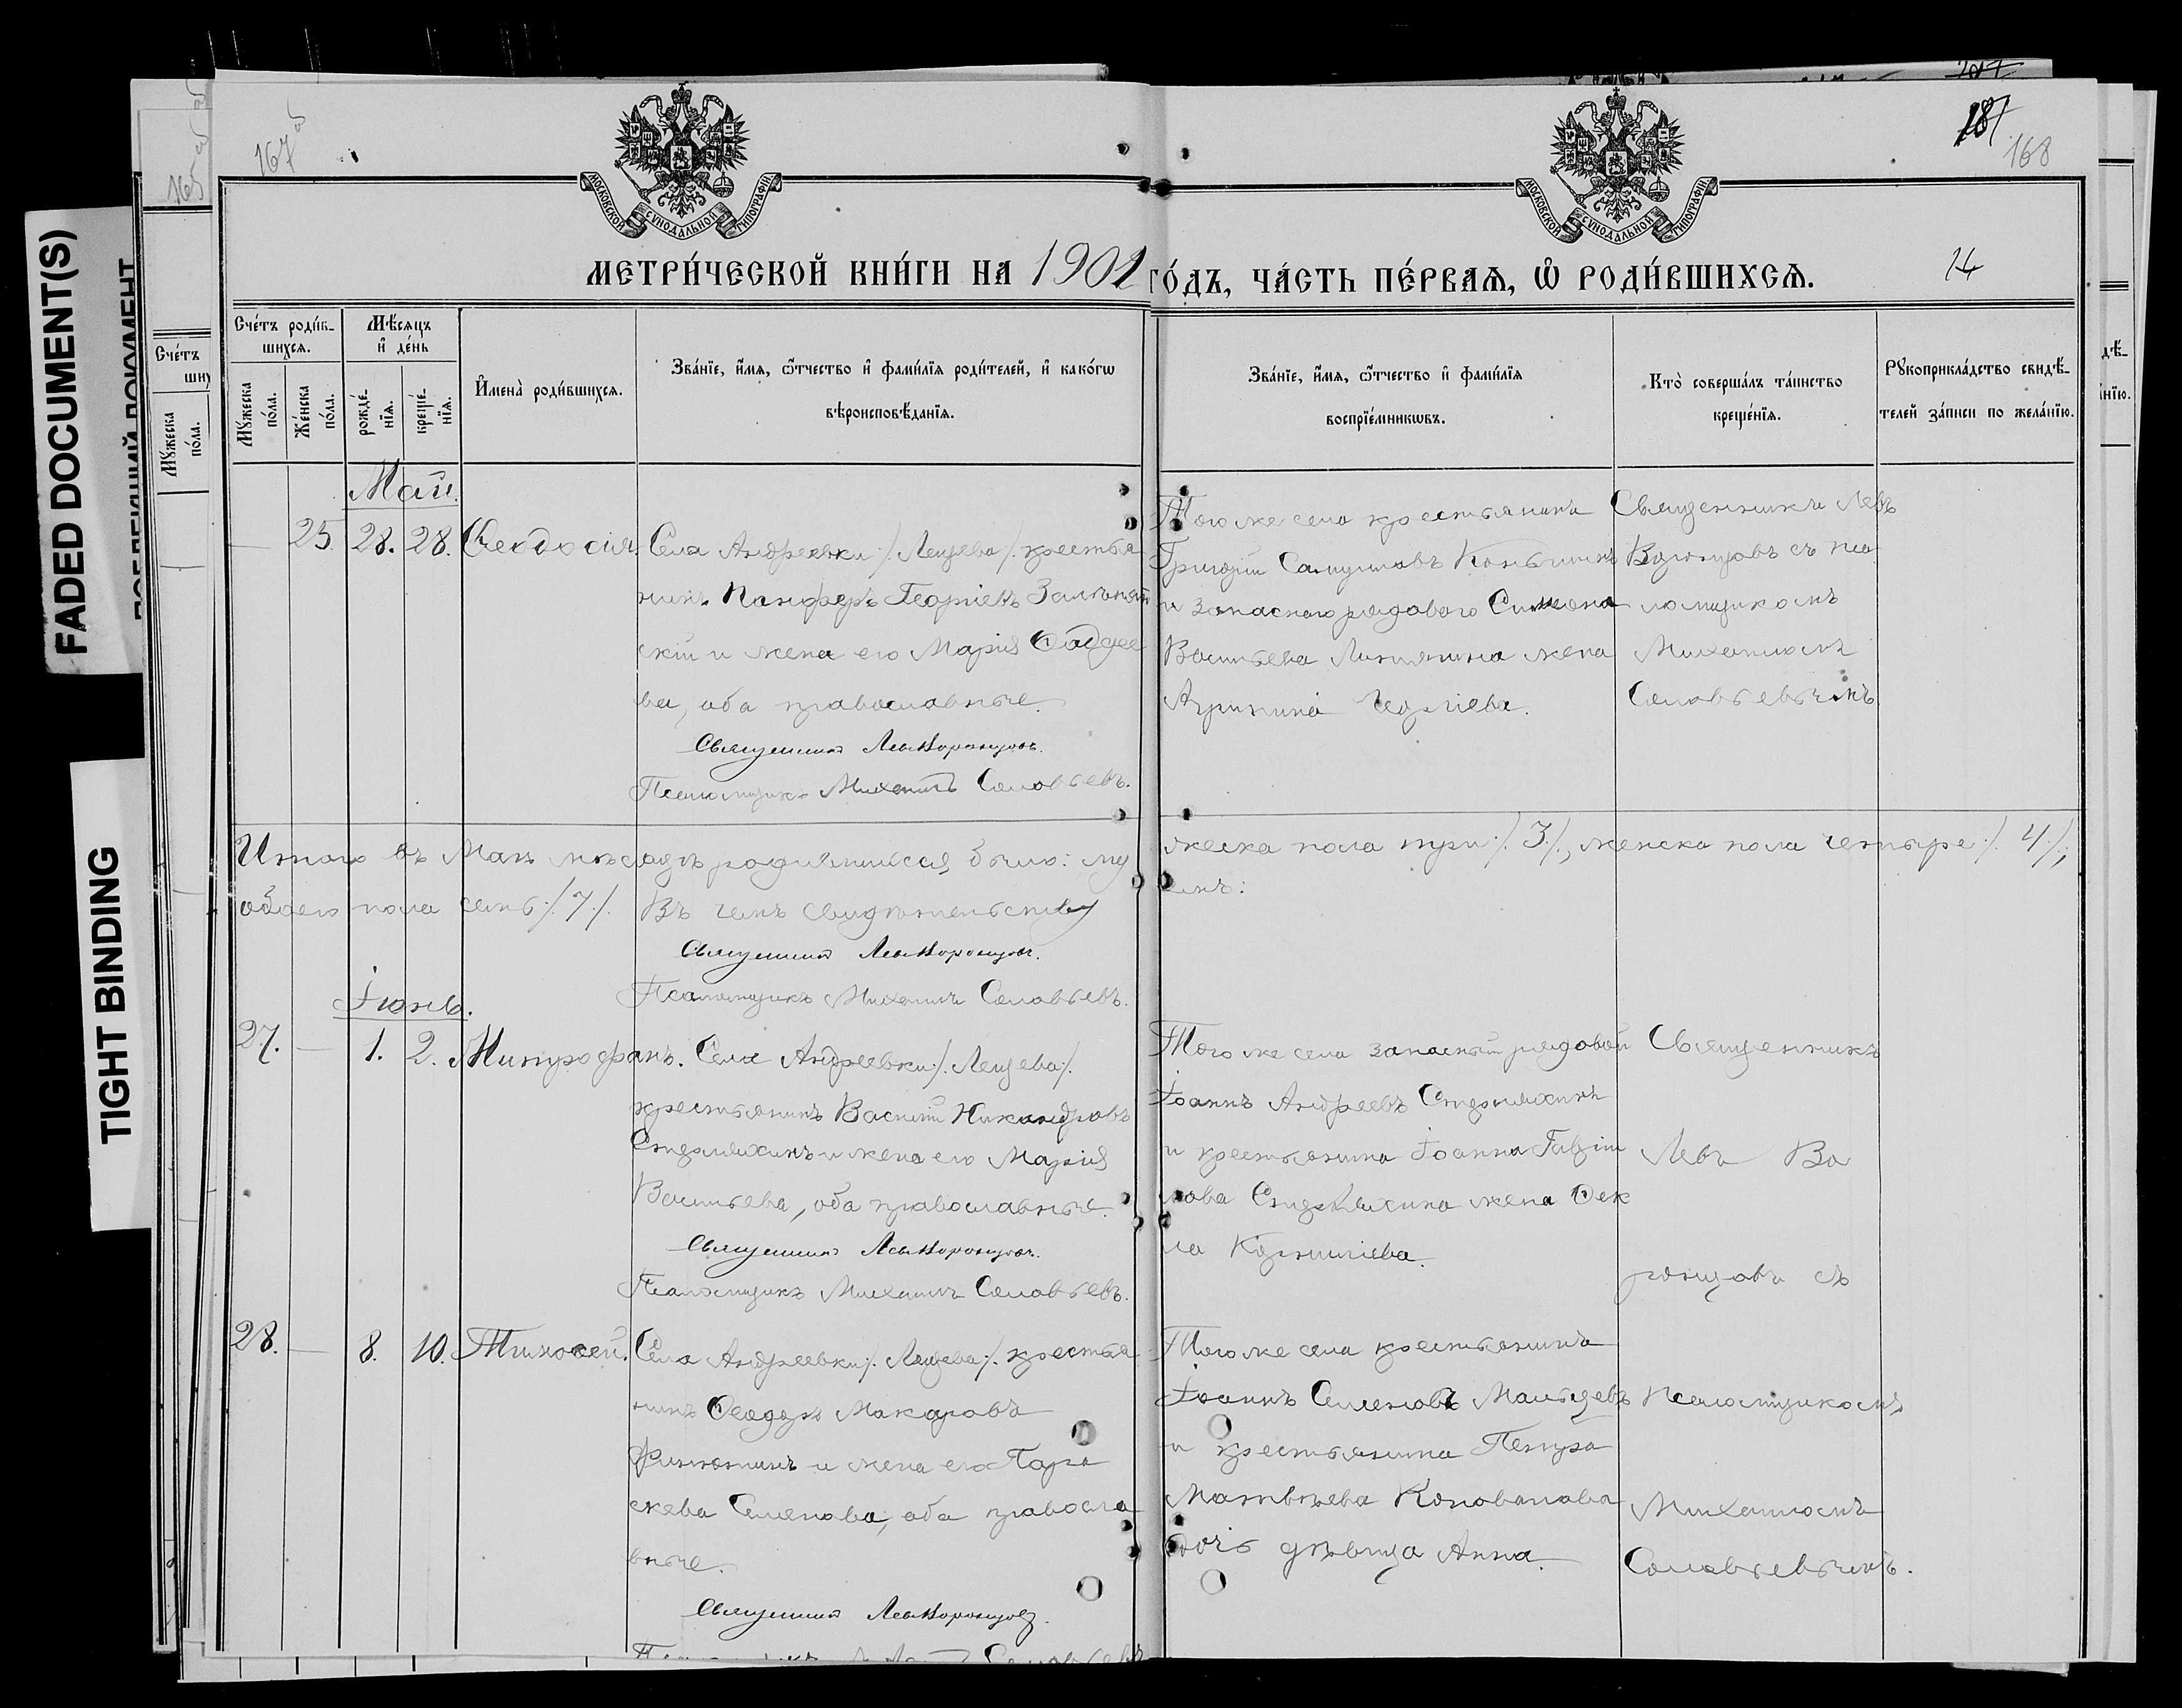 FADED DOCUMENT(S)
TIGHT BINDING
167 об
165 об
187
168
МОСКОВСКОЙ СУНОДАЛЬНОЙ ТИПОГРАФІИ
МОСКОВСКОЙ СУНОДАЛЬНОЙ ТИПОГРАФІИ
МЕТРИ́ЧЕСКОЙ КНИ́ГИ НА 1901
ГО́ДЪ, ЧА́СТЬ ПЕ́РВАѦ, Ѡ҆ РОДИ́ВШИХСѦ.
14
Сче́тъ роди́в-
шихсѧ.
Мꙋ́жеска по́ла.
Же́нска по́ла.
Мѣ́сѧцъ
и҆ де́нь
рожде́-
нїѧ.
креще́-
нїѧ.
И҆мена̀ роди́вшихсѧ.
Зва́нїе, и҆́мѧ, ѻ҆́тчество и҆ фами́лїѧ роди́телей, и҆ како́гѡ
вѣроисповѣ́данїѧ.
Зва́нїе, и҆́мѧ, ѻ҆́тчество и҆ фами́лїѧ
воспрїе́мникѡвъ.
Кто̀ соверша́лъ та́инство
креще́нїѧ.
Рꙋкоприкла́дство свидѣ́-
телей за́писи по жела́нїю.
Май.
— 25. 28. 28. Ѳеодосія.
Села Андреевки /. Лещева /. крестья
нинъ Панферъ Георгіевъ
скій и жена его Марія Фаддее
ва, оба православные.
Священникъ Левъ Воронцовъ.
Псаломщикъ Михаилъ Соловьевъ.
Того же села крестьянинъ
Григорій Самуиловъ
и запаснаго рядового Симеона
Васильева жена
Агрипина Георгіева.
Священникъ Левъ
Воронцовъ съ пса
ломщикомъ
Михаиломъ
Соловьевымъ.
Итого въ Маѣ мѣсяцѣ родившихся было: му
жеска пола три /. 3 /., женска пола четыре /. 4 /.,
обоего пола семь /. 7 /. Въ чемъ свидѣтельству
емъ:
Священникъ Левъ Воронцовъ.
Псаломщикъ Михаилъ Соловьевъ.
Іюнь.
27. — 1. 2. Митрофанъ.
Села Андреевки /. Лещева /.
крестьянинъ Василій Никандровъ
Стермяхинъ и жена его Марія
Васильева, оба православные.
Священникъ Левъ Воронцовъ.
Псаломщикъ Михаилъ Соловьевъ.
Того же села запасный рядовой
Іоаннъ Андреевъ Стермяхинъ
и крестьянина Іоанна Гаврии
лова Стермяхина жена Ѳек
ла Корнилiева.
Священникъ
Левъ Во
ронцовъ съ
28. — 8. 10. Тимоѳей.
Села Андреевки /. Лещева /. крестья
нинъ Ѳеодоръ Макаровъ
Финютинъ и жена его Пара
скева Семенова, оба правосла
вные.
Священникъ Левъ Воронцовъ.
Того же села крестьянинъ
Іоаннъ Семеновъ Мальцевъ
и крестьянина Петра
Матвѣева Коновалова
дочь дѣвица Анна.
псаломщикомъ
Михаиломъ
Соловьевымъ.